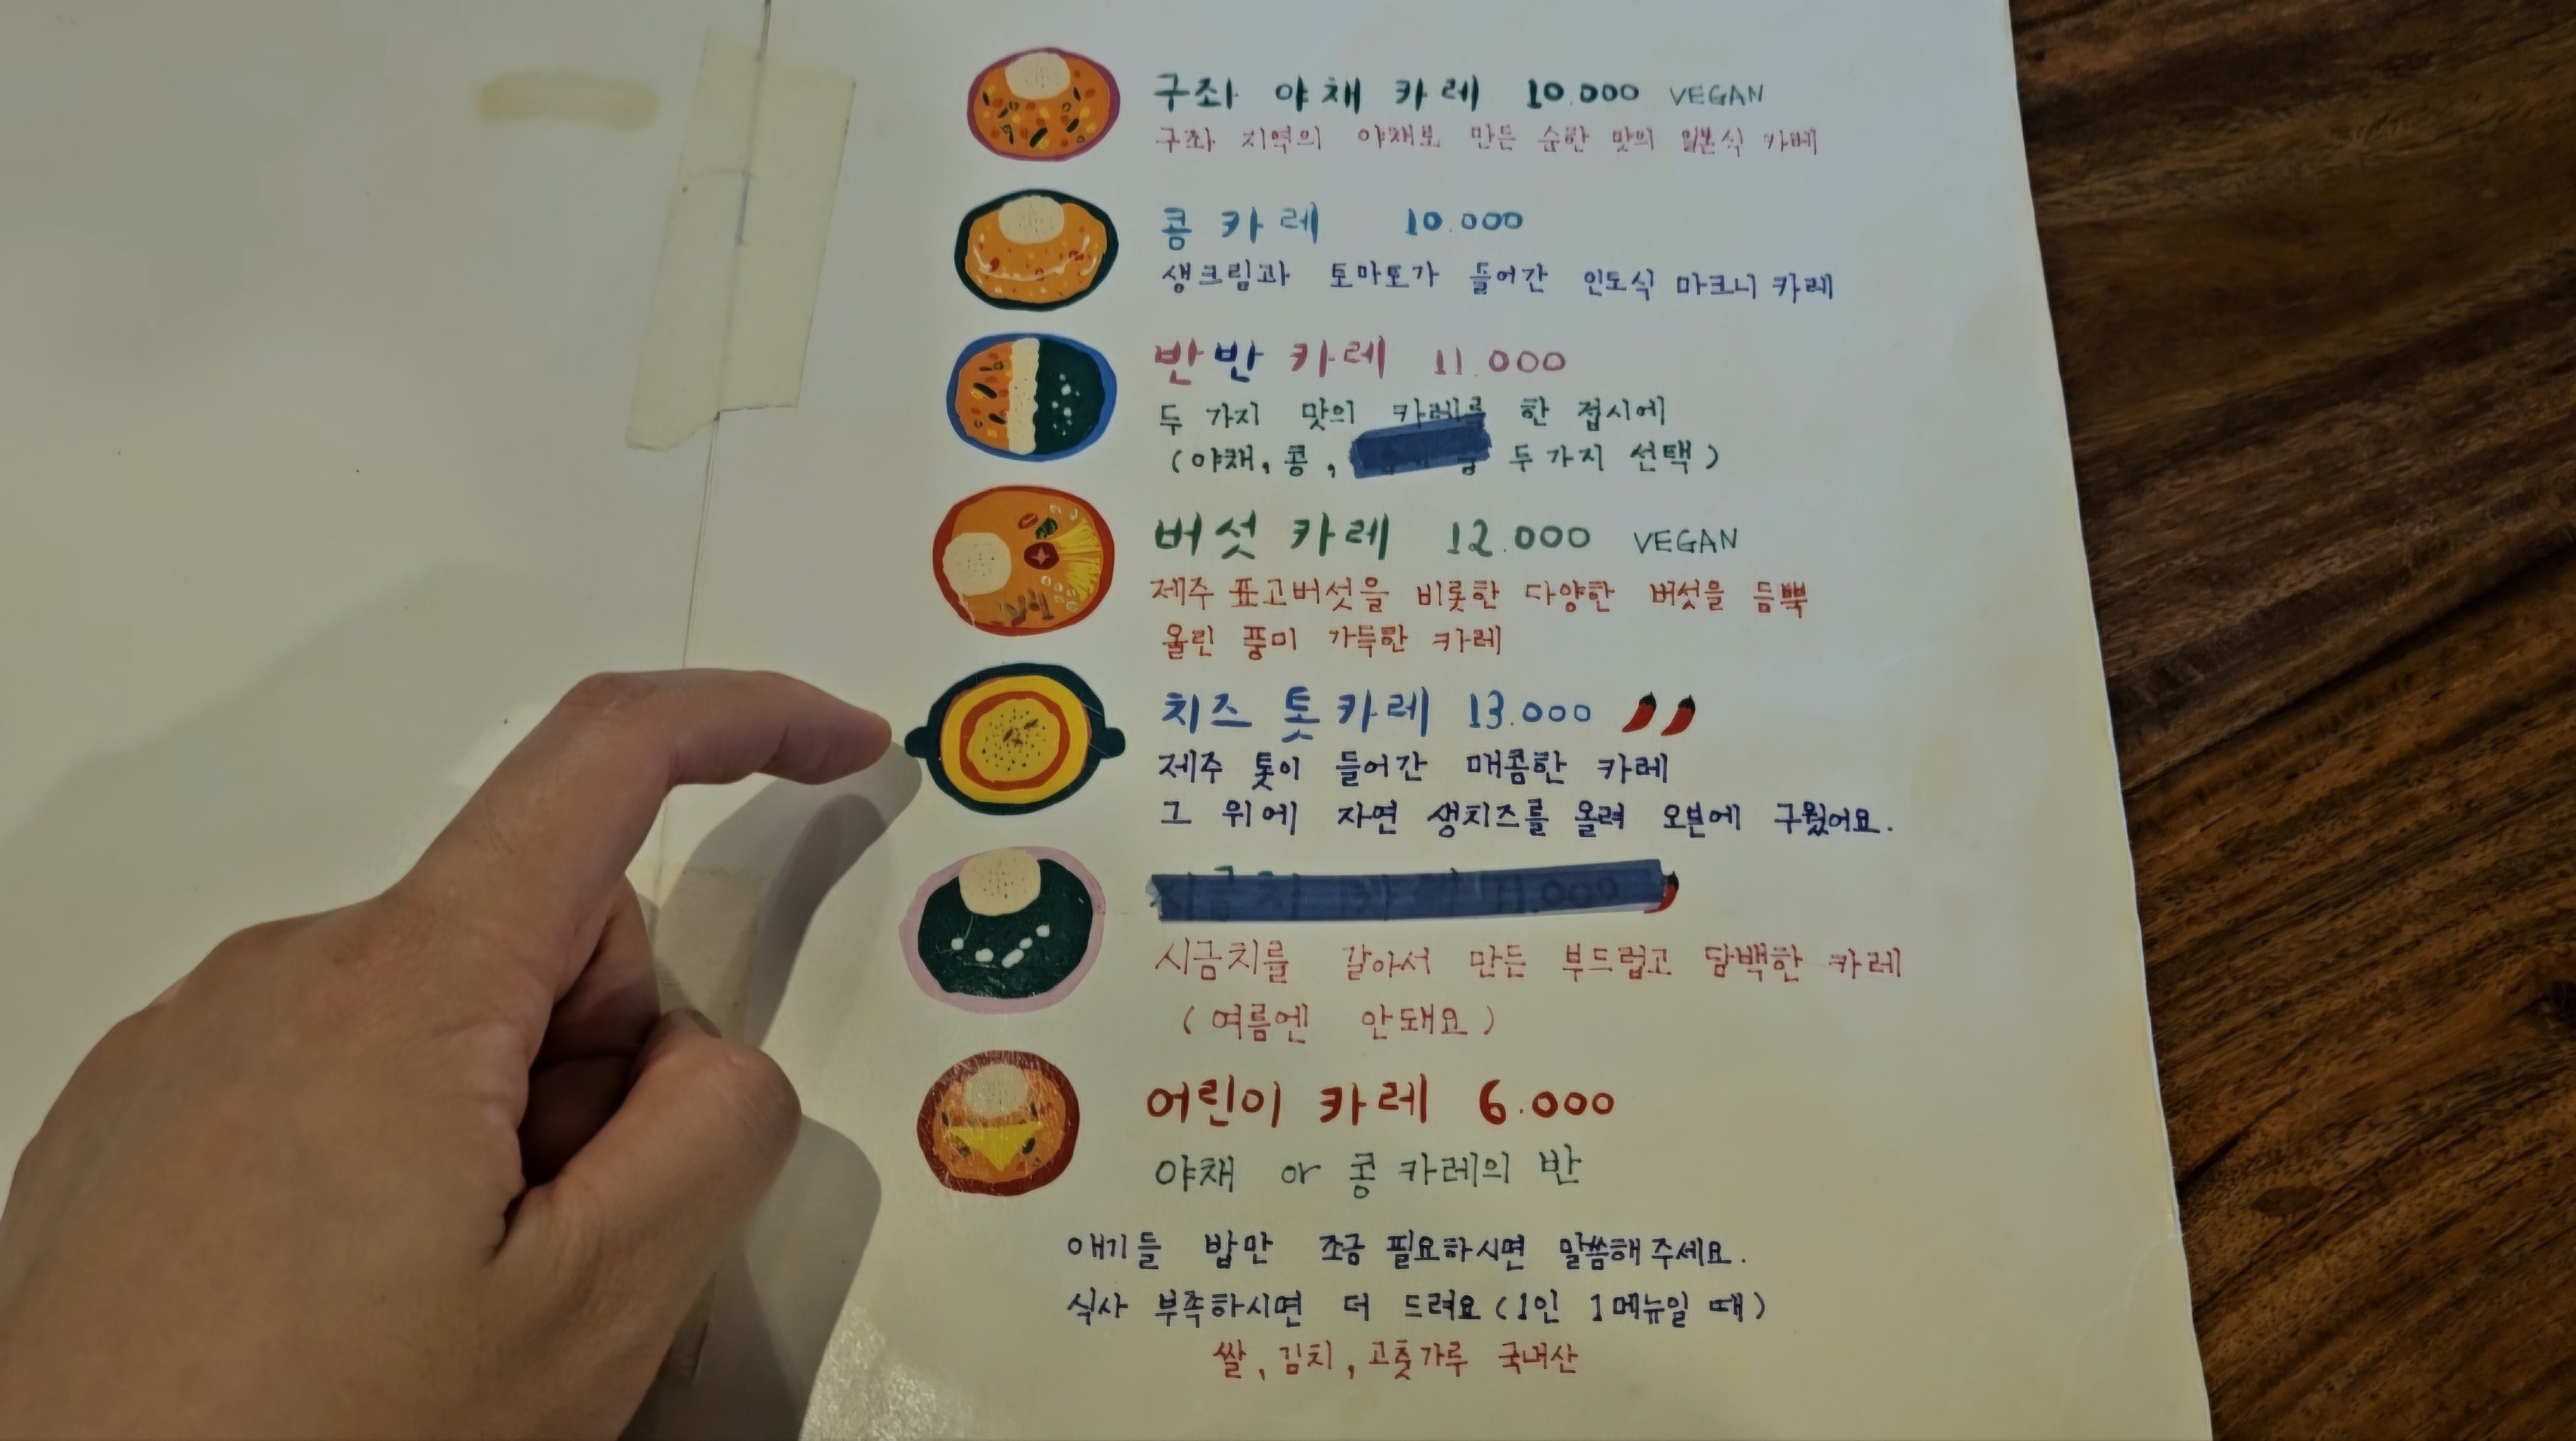 구좌 야채 카레 10.000 VEGAN
구좌 지역의 야채로 만든 순한 맛의 일본식 카레
콩 카레 10.000
생크림과 토마토가 들어간 인도식 마크니 카레
반반 카레 11.000
두 가지 맛의 카레를 한 접시에
(야채, 콩, 두가지 선택)
버섯 카레 12.000 VEGAN
제주 표고버섯을 비롯한 다양한 버섯을 듬뿍
올린 풍미 가득한 카레
치즈 톳 카레 13.000
제주 톳이 들어간 매콤한 카레
그 위에 자연 생치즈를 올려 오븐에 구웠어요.
11.000
시금치를 갈아서 만든 부드럽고 담백한 카레
(여름엔 안돼요)
어린이 카레 6.000
야채 or 콩 카레의 반
애기들 밥만 조금 필요하시면 말씀해 주세요.
식사 부족하시면 더 드려요 (1인 1메뉴일 때)
쌀, 김치, 고춧가루 국내산